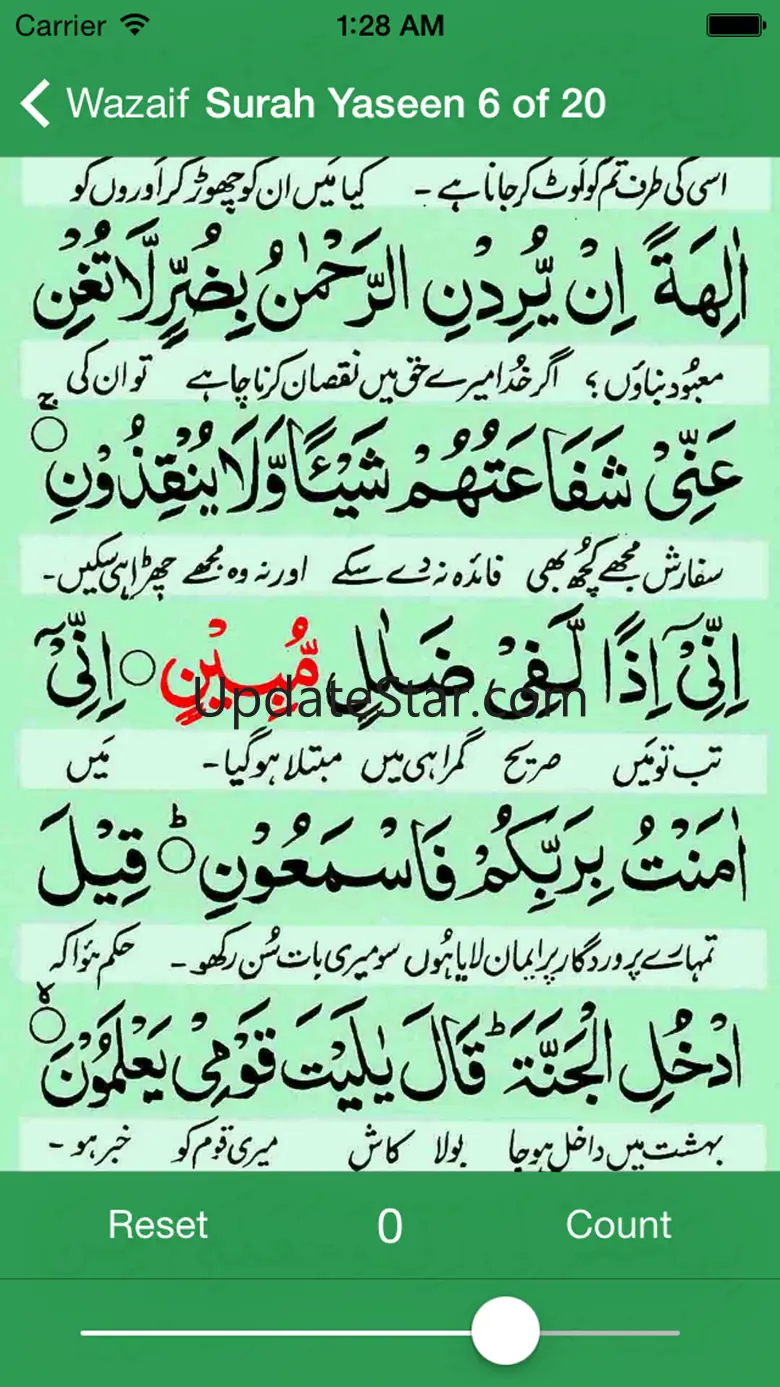 Carrier 1:28 AM
Wazaif Surah Yaseen 6 of 20
اسی کی طرف تم کو لوٹ کر جانا ہے - کیا میں ان کو چھوڑ کر اَوروں کو
اٰلِهَةً اِنْ يُّرِدْنِ الرَّحْمٰنُ بِضُرٍّ لَّا تُغْنِ
معبُود بناؤں؟ اگر خُدا میرے حق میں نقصان کرنا چاہے تو ان کی
عَنِّيْ شَفَاعَتُهُمْ شَيْـًٔا وَّلَا يُنْقِذُوْنِ ۚ
سفارش مجھے کُچھ بھی فائدہ نہ دے سکے اور نہ وہ مجھے چھڑا ہی سکیں-
اِنِّيْٓ اِذًا لَّفِيْ ضَلٰلٍ مُّبِيْنٍ ○ اِنِّيْٓ
UpdateStar.com
تب تو مَیں صریح گمراہی میں مبتلا ہو گیا- مَیں
اٰمَنْتُ بِرَبِّكُمْ فَاسْمَعُوْنِ ○ؕ قِيْلَ
تمہارے پروردگار پر ایمان لایا ہُوں سو میری بات سُن رکھو- حکم ہؤا کہ
ادْخُلِ الْجَنَّةَ ؕ قَالَ يٰلَيْتَ قَوْمِيْ يَعْلَمُوْنَ ○ۙ
بہشت میں داخل ہو جا بولا کاش میری قوم کو خبر ہو-
Reset 0 Count